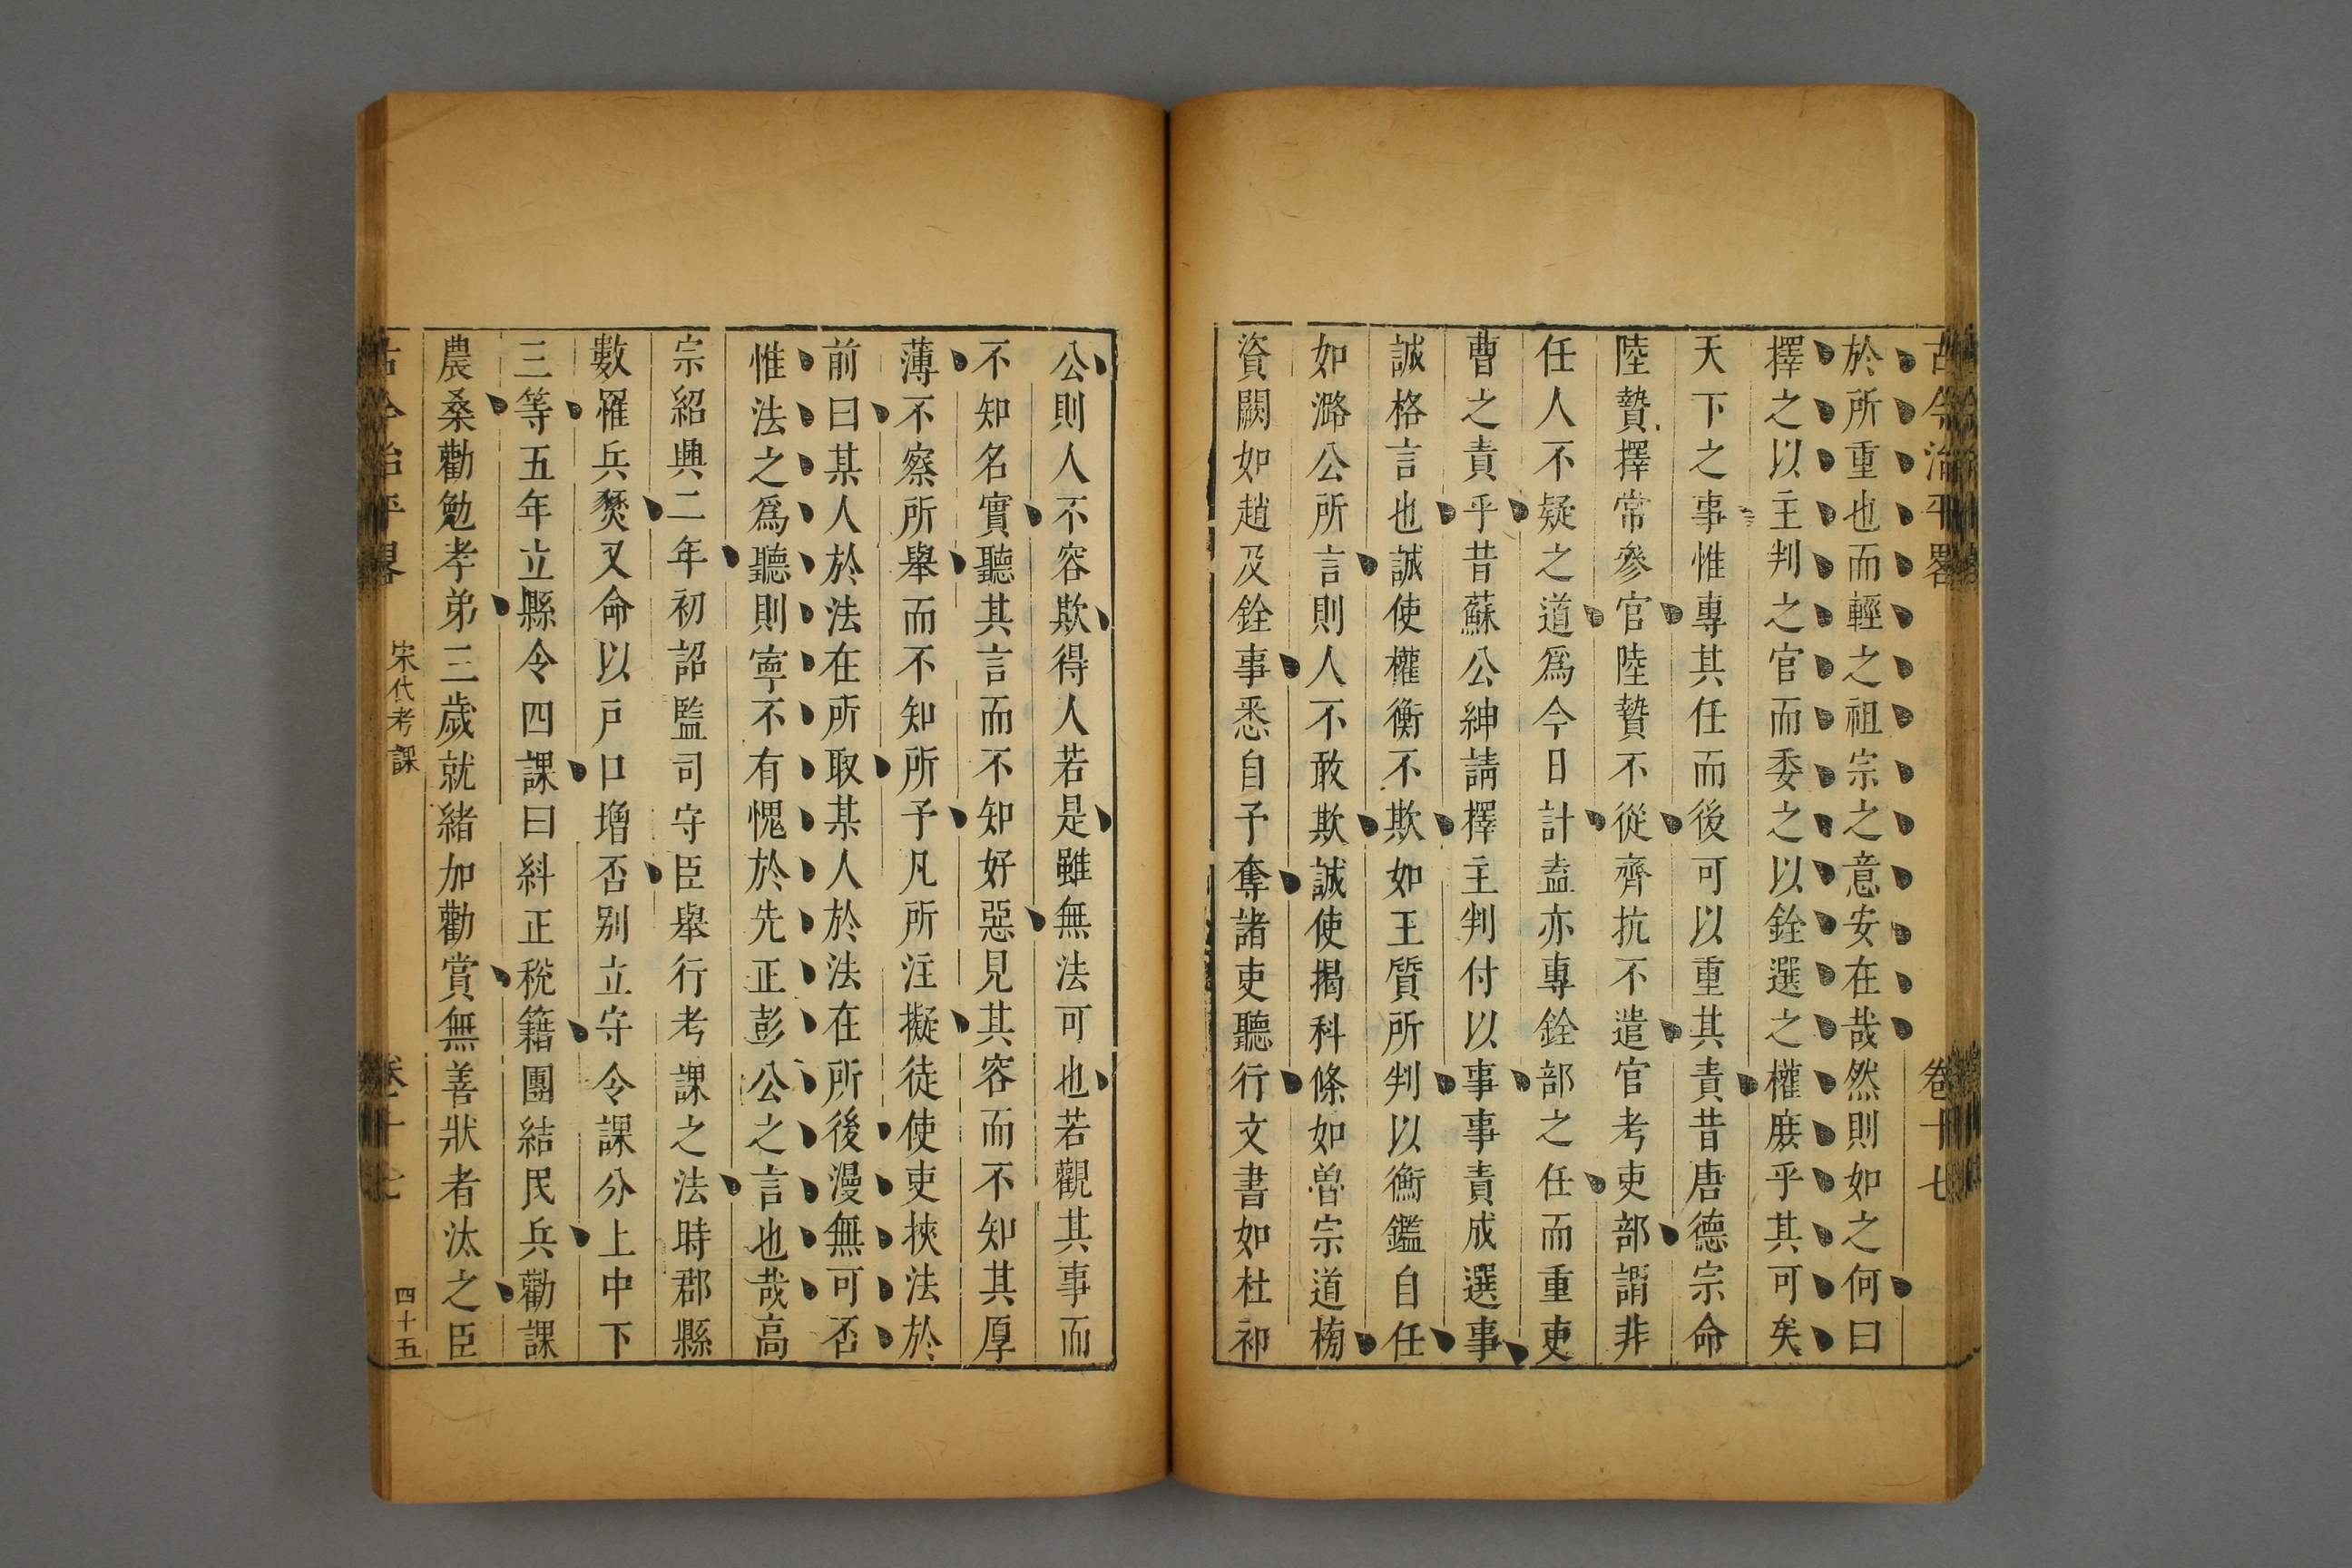 古今治平畧 卷十七
於所重也而輕之祖宗之意安在哉然則如之何曰
擇之以主判之官而委之以銓選之權庻乎其可矣
天下之事惟專其任而後可以重其責昔唐德宗命
陸贄擇常參官陸贄不從齊抗不遣官考吏部謂非
任人不疑之道爲今日計盍亦專銓部之任而重吏
曹之責乎昔蘇公紳請擇主判付以事事責成選事
誠格言也誠使權衡不欺如王質所判以衡鑑自任
如潞公所言則人不敢欺誠使揭科條如曾宗道榜
資闕如趙及銓事悉自予奪諸吏聽行文書如杜祁
公則人不容欺得人若是雖無法可也若觀其事而
不知名實聽其言而不知好惡見其容而不知其厚
薄不察所舉而不知所予凡所注擬徒使吏挾法於
前曰某人於法在所取某人於法在所後漫無可否
惟法之爲聽則寧不有愧於先正彭公之言也哉高
宗紹興二年初詔監司守臣舉行考課之法時郡縣
數罹兵燹又命以戸口增否别立守令課分上中下
三等五年立縣令四課曰糾正稅籍團結民兵勸課
農桑勸勉孝弟三歲就緒加勸賞無善狀者汰之臣
古今治平畧 宋代考課 卷十七 四十五